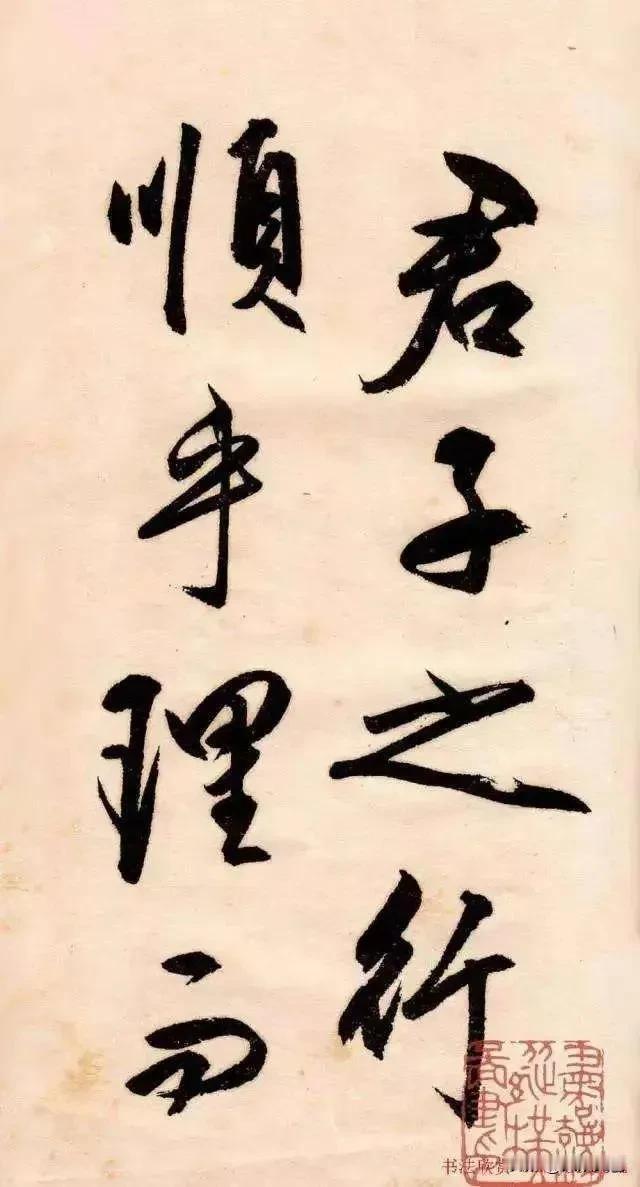 君子之行
順乎理而
书法欣赏